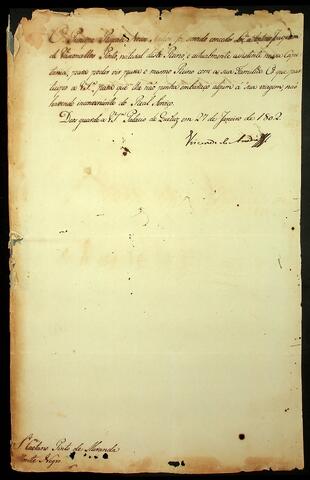 O Principe Regente Nosso Senhor foi servido conceder
de Vasconcellos Pinto, natural deste Reino, e actualmente assistente nessa Capi
tania, para poder vir para o mesmo Reino com a sua Familia: O que par
ticipo a VS.ª para que lhe não ponha embaraço algum á sua viagem, não
havendo inconveniente do Real Serviço.
Deos guarde a VS.ª Palacio de Queluz em 27 de Janeiro de 1802.
Visconde de Anadia
S.r Caetano Pinto de Miranda
Monte Negro